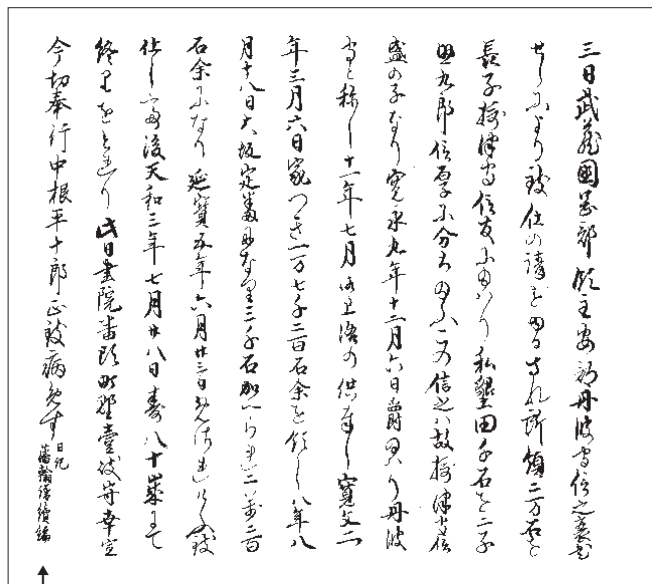 三日武蔵國岡部領主安部丹波守信之衰老
せしにより致仕の請をゆるされ所領二万石を
長子摂津守信友にたまはり私墾田千石を二子
四九郎信厚に分ちあたふこの信之は故摂津守信
盛の子なり寛永九年十二月六日爵賜はり丹波
守と称し十一年七月御上洛の供奉し寛文二
年三月六日家つぎ一万七千二百石余を領し八年八
月十八日大坂定番になり三千石加へられ二万二百
石余になり延寶五年六月廿三日ゆるされけふ致
仕し
後天和三年七月廿八日壽八十歳にて
終りをとれり此日書院番頭
壹岐守幸宣
今切奉行中根平十郎正致病免す 日記
藩翰譜續編